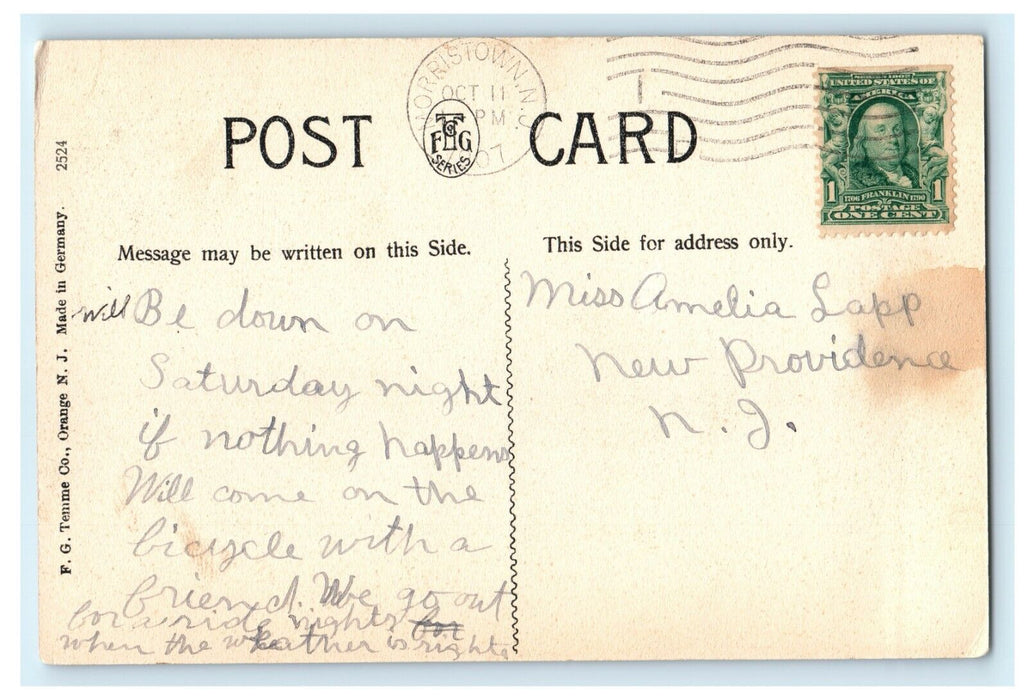 MORRISTOWN, N.J.
OCT 11
PM
07
POST CARD
F T G
Co
SERIES
SERIES 1902
UNITED STATES OF
AMERICA
1 1
1706 FRANKLIN 1790
POSTAGE
ONE CENT
Message may be written on this Side.
This Side for address only.
F. G. Temme Co., Orange N. J. Made in Germany. 2524
will Be down on
Saturday night
if nothing happens
Will come on the
bicycle with a
friend. We go out
for a ride nights for
when the weather is right
Miss Amelia Lapp
New Providence
N. J.